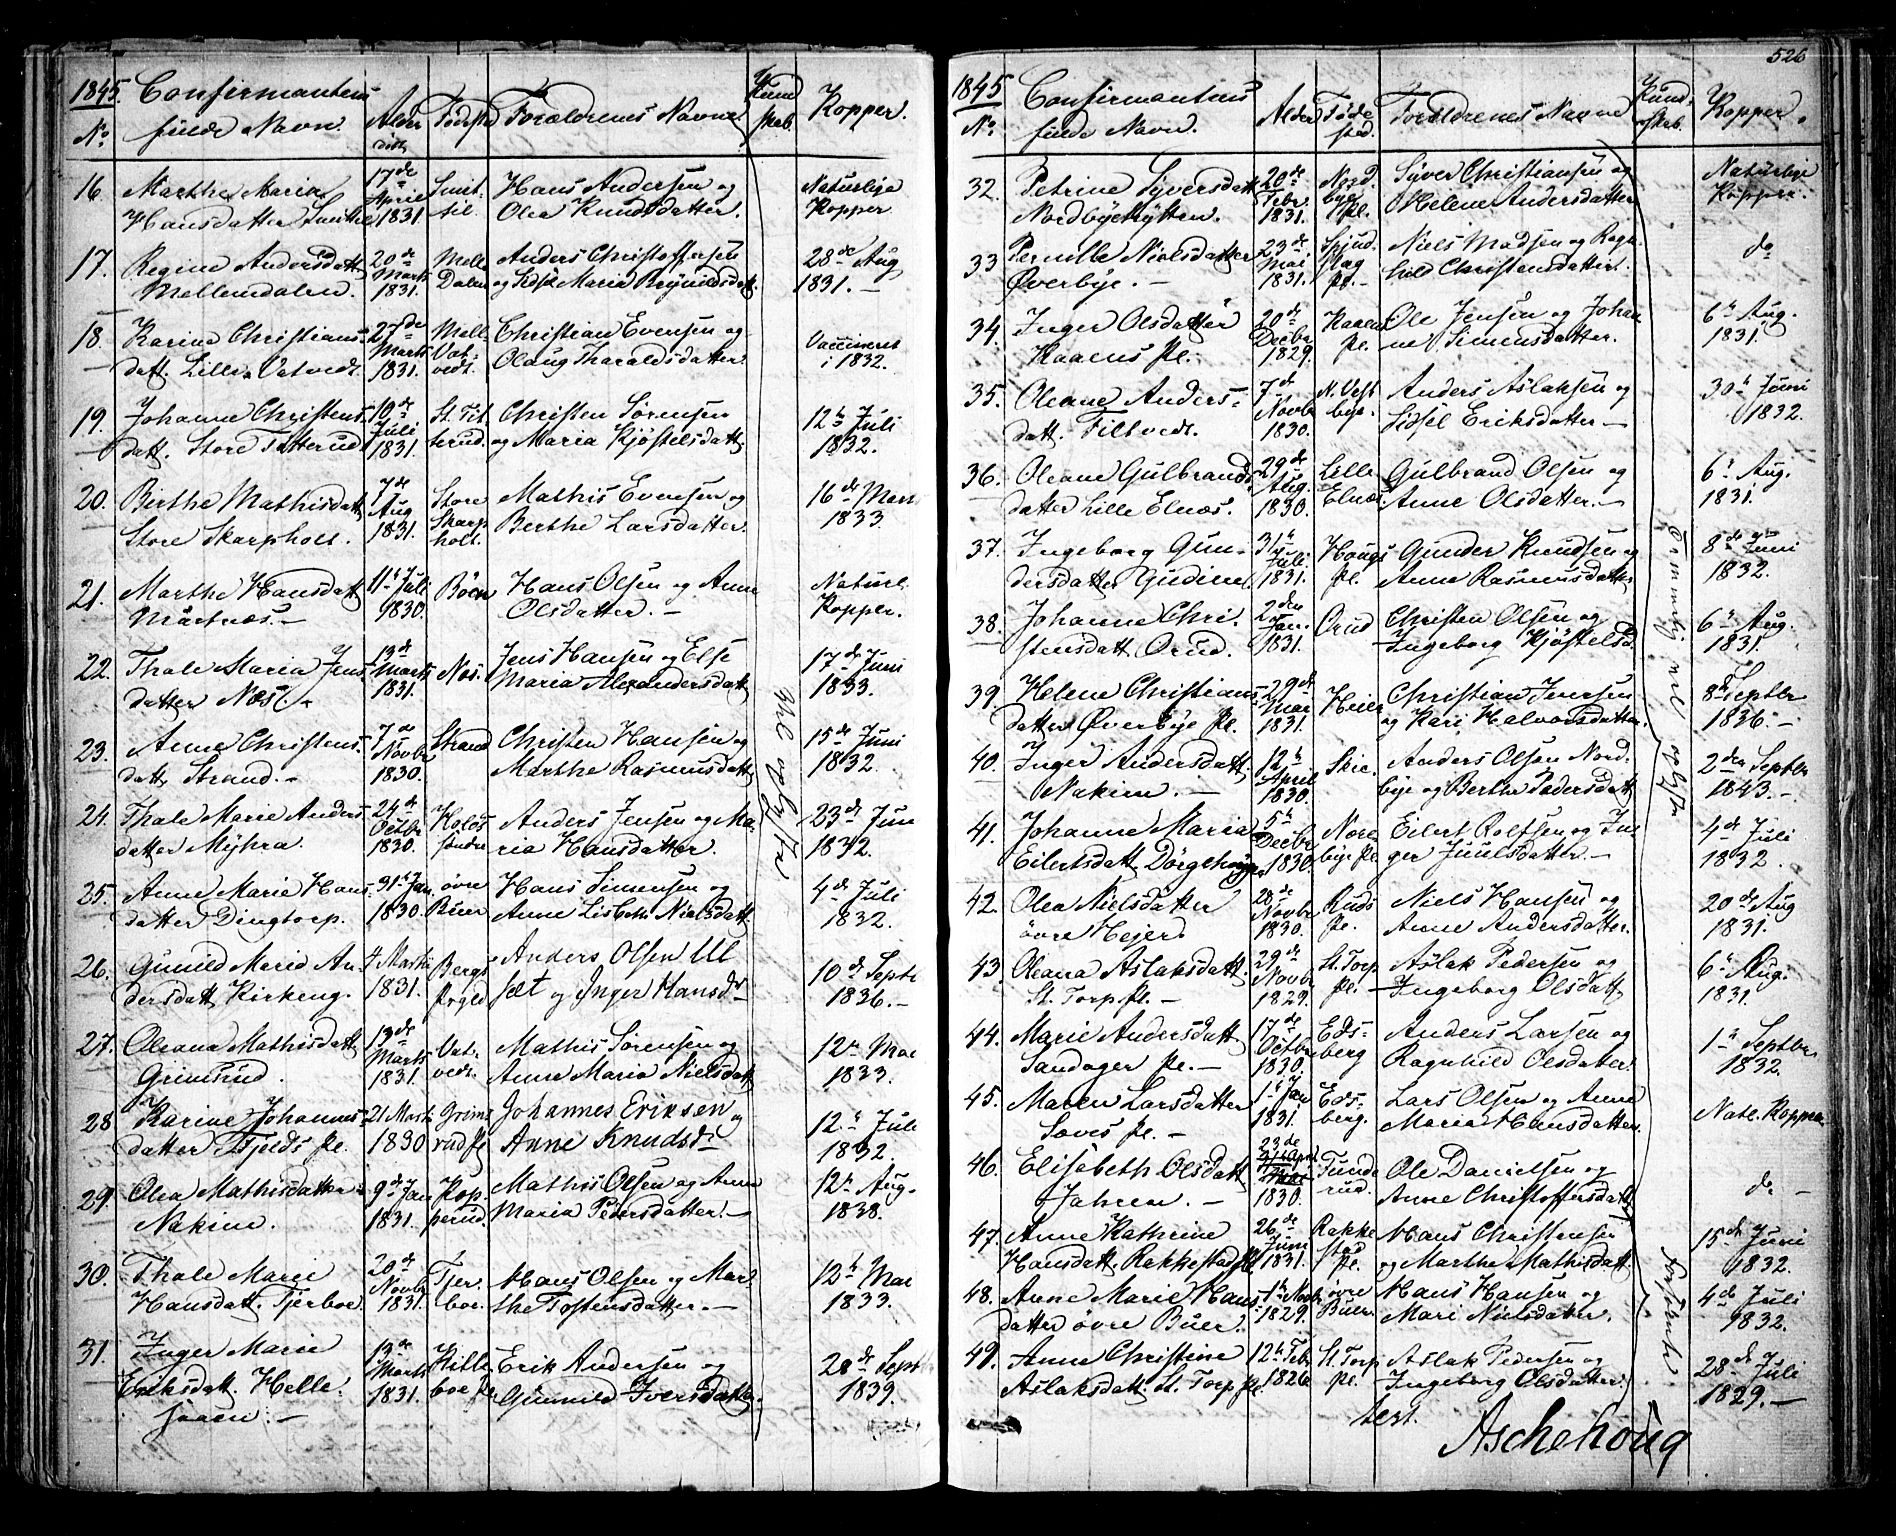 1845. Confirmantens Alder Fødested Forældrenes Navne Kundskab. Kopper.
No. fulde Navn.
16. Marthe Maria 17de Smit- Hans Andersen og Naturlige
Hansdatter April 1831 til. Olea Knudsdatter. Kopper
17. Regine Andersdatt 20de Melle Anders Christoffersen 28de Aug
Mellemdalen. Marts 1831. Dalen og Maria 1831. —
18. Karine Christians- 27de Mell Christian Evensen og Vaccineret
datt. Lille Vatvedt. Marts 1831. Vat-vedt. Olaug Tharaldsdatter. i 1832.
19. Johanne Christens- 10de St. Tit Christen Sørensen 12te Juli
datt. Store Titterud Juli 1831. terud. og Maria Kjøstelsdatt 1832.
20. Birthe Mathisdatt 7de Store Mathis Evensen og 16de
Store Skarpholt. Aug 1831. Skarpholt. Berthe Larsdatter. 1833.
21. Marthe Hansdatt 11te Juli Hans Olsen og Anne Naturl.
1830. Olsdatter. — Kopper.
22. Thale Maria Jens 13de Næs. Jens Hansen og Else 17de Juni
datter Næs. Marts 1831. Maria Alexandersdatt 1833.
23. Anne Christens- 7de Strand Christen Hansen og 15de Juni
datt Strand. - Novbr 1830. Marthe Rasmusdatt 1832.
24. Thale Marie Anders 24de Holøs Anders Jensen og Ma- 23de
datter Myhra. Octbr 1830. søndre ria Hansdatter. 1832.
25. Anne Marie Hans 31te Jan. øvre Hans Simensen og 4de Juli
datter Dingtorp. 1830. Buer Anne Lisbeth Nielsdatt 1832.
26. Gunild Marie An 4 Marts Bergs Anders Olsen 10de Septr
dersdatt Kirkeng. 1831. sæt og Inger Hansdr 1836. —
27. Oleana Mathisdatt 13de Vat- Mathis Sørensen og 12te Mai
Grimsrud. Marts 1831. vedt. Anne Maria Nielsdatt 1833.
28 Karine Johannes- 21 Marts Grims Johannes Eriksen og 12te Juli
datter pl. 1830 rud pl Anne Knudsdr 1832.
29. Olea Mathisdatter 9de Jan Kop- Mathis Olsen og Anne 12te Aug.
Nakim. 1831. perud. Maria Pedersdatter. — 1838.
30. Thale Marie 20de Tjer- Hans Olsen og Mar 12te Mai
Hansdatt. Tjerboe Novbr 1831. bor. the Tostensdatter. — 1833.
31. Inger Marie 13de Erik Andersen og 28de Septr
Eriksdatt. Helle- Marts 1831. Gunnild Iversdatter. 1839.
saaen. —
526
1845 Confirmantens Alder Føde- Forældrenes Navne Kund- Kopper.
No. fulde Navn. sted. skab.
32. Petrine Syversdatt 20de Nord- Syver Christiansen og Naturlige
Nordbyehytten. Febr 1831. bye pl. Helene Andersdatter Kopper.
33 Pernille Nielsdatter 23de Niels Madsen og Ragn- do
Øverbye. — Mai 1831. pl. — hild Christensdatter.
34. Inger Olsdatter 20de Kaaens Ole Jensen og Johan 6te Aug.
Kaaens pl. Decbr 1829. pl. ne Simensdatter. 1831.
35. Oleane Anders- 7de N. Vest Anders Aslaksen og 30te Juni
datt. Filtvedt. Novbr 1830. bye. Sidsel Eriksdatter — 1832.
36. Oleane Gulbrands- 29de Lille Gulbrand Olsen og 6te Aug.
datter Lille Elnæs. Aug. 1830. Elnæs. Anne Olsdatter. — 1831.
37. Ingeborg Gun- 31te Gunder Knudsen og 8de Juni
dersdatter Juli 1831. pl. Anne Rasmusdatter 1832.
38. Johanne Chri- 2den Orud Christen Olsen og 6te Aug.
stensdatt Orud. Jan. 1831. Ingeborg Kjøstelsd. 1831.
39. Helene Christians- 29de Heier Christian Iversen 8de Septbr
datter Øverbye pl. Mai 1831. og Kari Halvorsdatter. 1836. —
40. Inger Andersdatt 12te Skie. Anders Olsen Nord- 2den Septbr
Nakim. — April 1830. bye og Berthe Pedersdatt 1843. —
41. Johanne Maria 5te Nord- Eilert Rolfsen og In 4de Juli
Eilertsdatt Decbr 1830. bye pl. ger Juulsdatter. — 1832.
42. Olea Nielsdatter 28de Ruds Niels Hansen og 20de Aug
øvre Hejer. Novbr 1830. pl. Anne Andersdatter. 1831.
43. Oleana Aslaksdatt. 29de St. Torp Aslak Pedersen og 6te Aug.
St. Torps pl. — Novbr 1829. pl. — Ingeborg Olsdatt 1831.
44. Marie Andersdatt 17de Eds- Anders Larsen og 1te Septbr
Sandager pl. — Octbr 1830. berg Ragnhild Olsdatter. 1832.
45. Maren Larsdatter 1te Jan Eds- Lars Olsen og Anne Natl. Kopper
pl. — 1831. berg. Maria Hansdatter.
46. Elisabeth Olsdatt 23de Tunde Ole Danielsen og do —
Jahren. — 1830. rud. Anne Christoffersdatt
47. Anne Kathrine 26de Rakke Hans Christensen 15de Juni
Hansdatt. Rakkestad pl Juni 1831. stad pl. og Marthe Mathisdatt. 1832.
48. Anne Marie Hans- 1te Novbr øvre Hans Hansen og 4de Juli
datter øvre Buer. 1829. Buer. Mari Nielsdatter. 1832.
49. Anne Christine 12te Febr St. Torp Aslak Pedersen og 28de Juli
Aslaksdatt. St. Torp pl. 1826. pl. Ingeborg Olsdatter. 1829. —
test.
Aschehoug